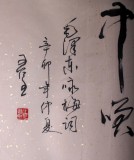 中笑
毛泽东咏梅词
辛卯年仲夏